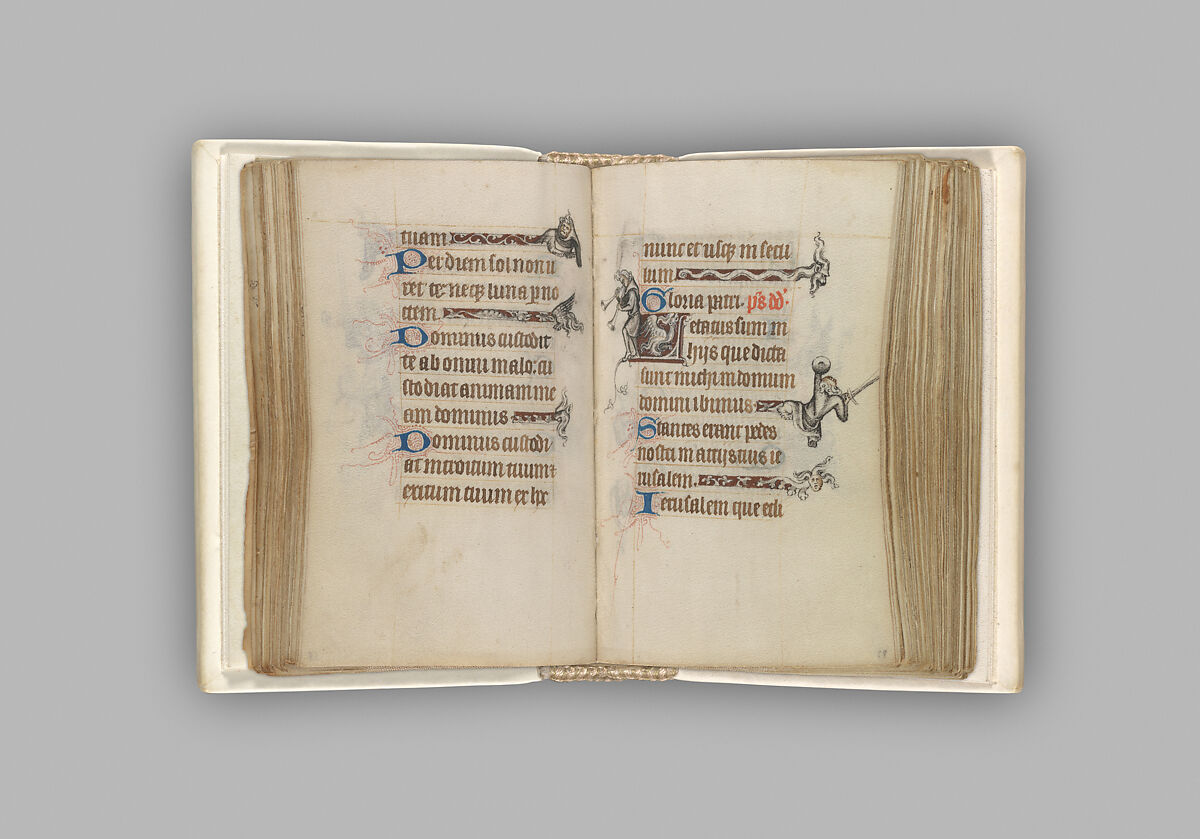 tuam
Per diem sol non u
ret te: neq; luna p no
ctem.
Dominus custodit
te ab omni malo: cu
stodiat animam me
am dominus
Dominus custodi
at introitum tuum ⁊
exitum tuum ex hoc
nunc et usq; in secu
lum
Gloria patri. p̄s dd'.
Letatus sum in
hijs que dicta
sunt michi in domum
domini ibimus
Stantes erant pedes
nostri in atrijs tuis ie
rusalem.
Ierusalem que edi